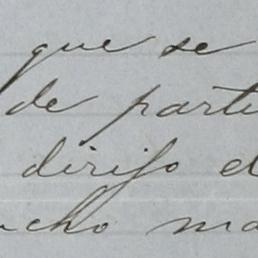 que se
de parti
dirijo el
ucho ma